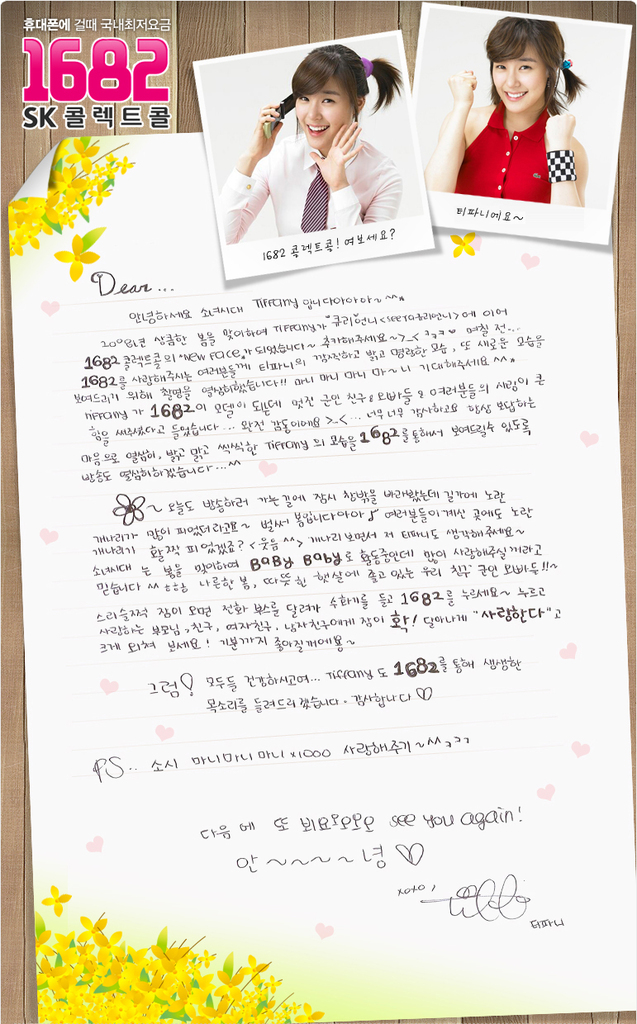 휴대폰에 걸때 국내최저요금
1682
SK 콜렉트콜
1682 콜렉트콜! 여보세요?
티파니에요~
Dear...
안녕하세요 소녀시대 Tiffany 입니다아아아~^^*
2008년 상큼한 봄을 맞이하여 Tiffany가 "큐리언니<see ya큐리언니>에 이어
1682 콜렉트콜의 "New Face"가 되었습니다~ 축하해주세요~>_< ㅋㅋㅋ♥ 며칠 전...
1682를 사랑해주시는 여러분들께 티파니의 깜찍하고 밝고 명랑한 모습, 또 새로운 모습을
보여드리기 위해 촬영을 열심히했습니다!! 마니 마니 마니 마~니 기대해주세요^^*
Tiffany가 1682의 모델이 되는데 멋진 군인 친구&오빠들& 여러분들의 사랑이 큰
힘을 써주셨다고 들었습니다... 완전 감동이에요>_<... 너무 너무 감사하고요 항상 보답하는
마음으로 열심히, 밝고 맑고 씩씩한 Tiffany의 모습을 1682를 통해서 보여드릴수 있도록
방송도 열심히하겠습니다...^^
~ 오늘도 방송하러 가는길에 잠시 창밖을 바라봤는데 길가에 노란
개나리가 많이 피었더라고요~ 벌써 봄입니다아아♪ 여러분들이 계신 곳에도 노란
개나리가 활짝 피었겠죠? <웃음^^> 개나리 보면서 저 티파니도 생각해주세요~
소녀시대 는 봄을 맞이하여 BaBy BaBy로 활동중인데 많이 사랑해주실꺼라고
믿습니다^^ 나른한 봄, 따뜻한 햇살에 졸고 있는 우리 친구 군인 오빠들!!~
스리슬쩍 잠이 오면 전화 부스를 달려가 수화기를 들고 1682를 누르세요~ 누르고
사랑하는 부모님, 친구, 여자친구, 남자친구에게 잠이 확! 달아나게 "사랑한다"고
크게 외쳐 보세요! 기분까지 좋아질꺼에용~
그럼! 모두들 건강하시고여... Tiffany도 1682를 통해 생생한
목소리를 들려드리겠습니다. 감사합니다♡
PS.. 소시 마니마니마니 x1000 사랑해주기~^^ㅋㅋ
다음에 또 뵈요오오오오 see you again!
안~~~~녕♡
xoxo,
티파니